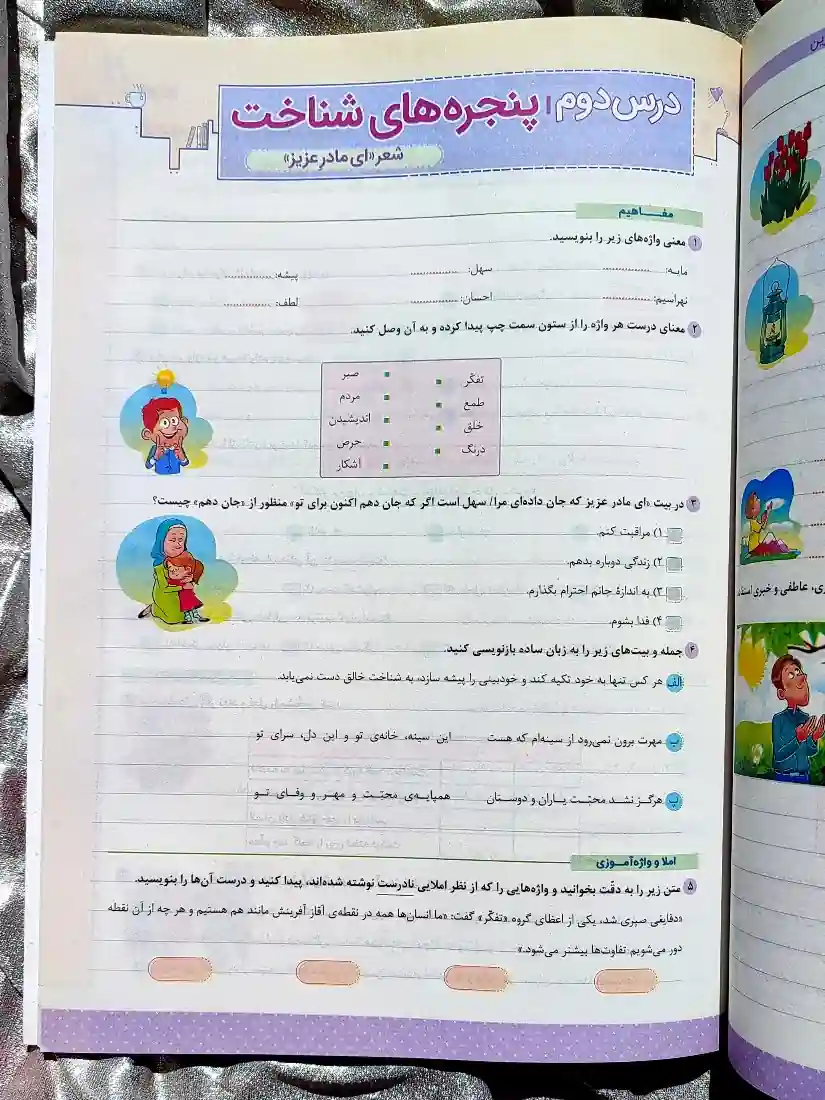 درس دوم | پنجره‌های شناخت
شعر «ای مادر عزیز»
مفــاهیم
۱ معنی واژه‌های زیر را بنویسید.
مایه: ............... سهل: ............... پیشه: ...............
نهراسیم: ............... احسان: ............... لطف: ...............
۲ معنای درست هر واژه را از ستون سمت چپ پیدا کرده و به آن وصل کنید.
تفکّر
طمع
خلق
درنگ
صبر
مردم
اندیشیدن
حرص
آشکار
۳ در بیت «ای مادر عزیز که جان داده‌ای مرا/ سهل است اگر که جان دهم اکنون برای تو» منظور از «جان دهم» چیست؟
۱) مراقبت کنم.
۲) زندگی دوباره بدهم.
۳) به اندازهٔ جانم احترام بگذارم.
۴) فدا بشوم.
۴ جمله و بیت‌های زیر را به زبان ساده بازنویسی کنید.
الف هر کس تنها به خود تکیه کند و خودبینی را پیشه سازد، به شناخت خالق دست نمی‌یابد.
ب مهرت برون نمی‌رود از سینه‌ام که هست این سینه، خانه‌ی تو و این دل، سرای تو
پ هرگز نشد محبّت یاران و دوستان همپایه‌ی محبّت و مهر و وفای تو
املا و واژه‌آمــوزی
۵ متن زیر را به دقّت بخوانید و واژه‌هایی را که از نظر املایی نادرست نوشته شده‌اند، پیدا کنید و درست آن‌ها را بنویسید.
«دقایقی صبری شد، یکی از اعطای گروه «تفکّر» گفت: «ما انسان‌ها همه در نقطه‌ی آقاز آفرینش مانند هم هستیم و هر چه از آن نقطه
دور می‌شویم تفاوت‌ها بیشتر می‌شود.»
ی، عاطفی و خبری